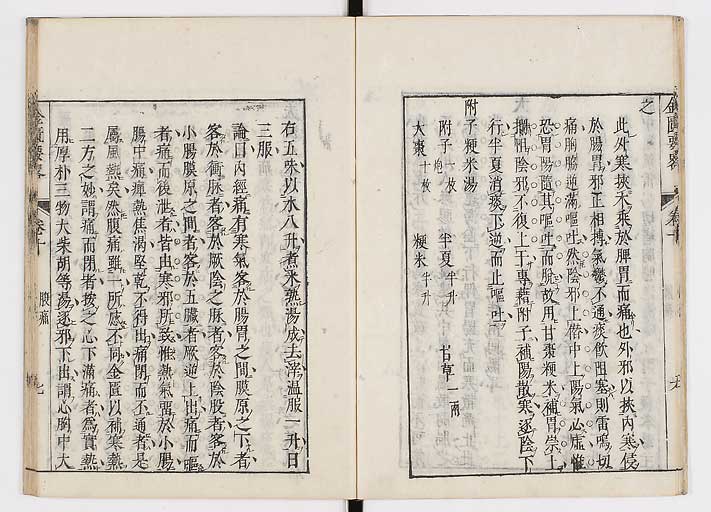 之
此外寒挾木乘於脾胃而痛也外邪以挾內寒侵
於腸胃邪正相搏氣鬱不通痰飲阻塞則雷鳴切
痛胸脇逆滿嘔吐然陰邪上僭中上陽氣必虛惟
恐胃陽隨其嘔吐而脫故用甘棗粳米補胃崇土
攔阻陰邪不復上干專藉附子補陽散寒逐陰下
行半夏消痰下逆而止嘔吐
附子粳米湯
附子一枚炮 半夏半升 甘草一兩
大棗十枚 粳米半升
右五味以水八升煮米熟湯成去滓溫服一升日
三服
論曰內經痛有寒氣客於腸胃之間膜原之下者
客於衝脉者客於厥陰之脉者客於陰股者客於
小腸膜原之間者客於五臟者厥逆上出痛而嘔
者痛而後泄者皆由寒邪所致惟熱氣留於小腸
腸中痛癉熱焦渴堅乾不得出痛閉而不通者是
屬風熱矣然腹痛雖一所感不同金匱以補寒熱
二方之妙謂痛而閉者按之心下滿痛者為實熱
用厚朴三物大柴胡等湯逐邪下出謂心胸中大
金匱要略
卷十
腹痛
七